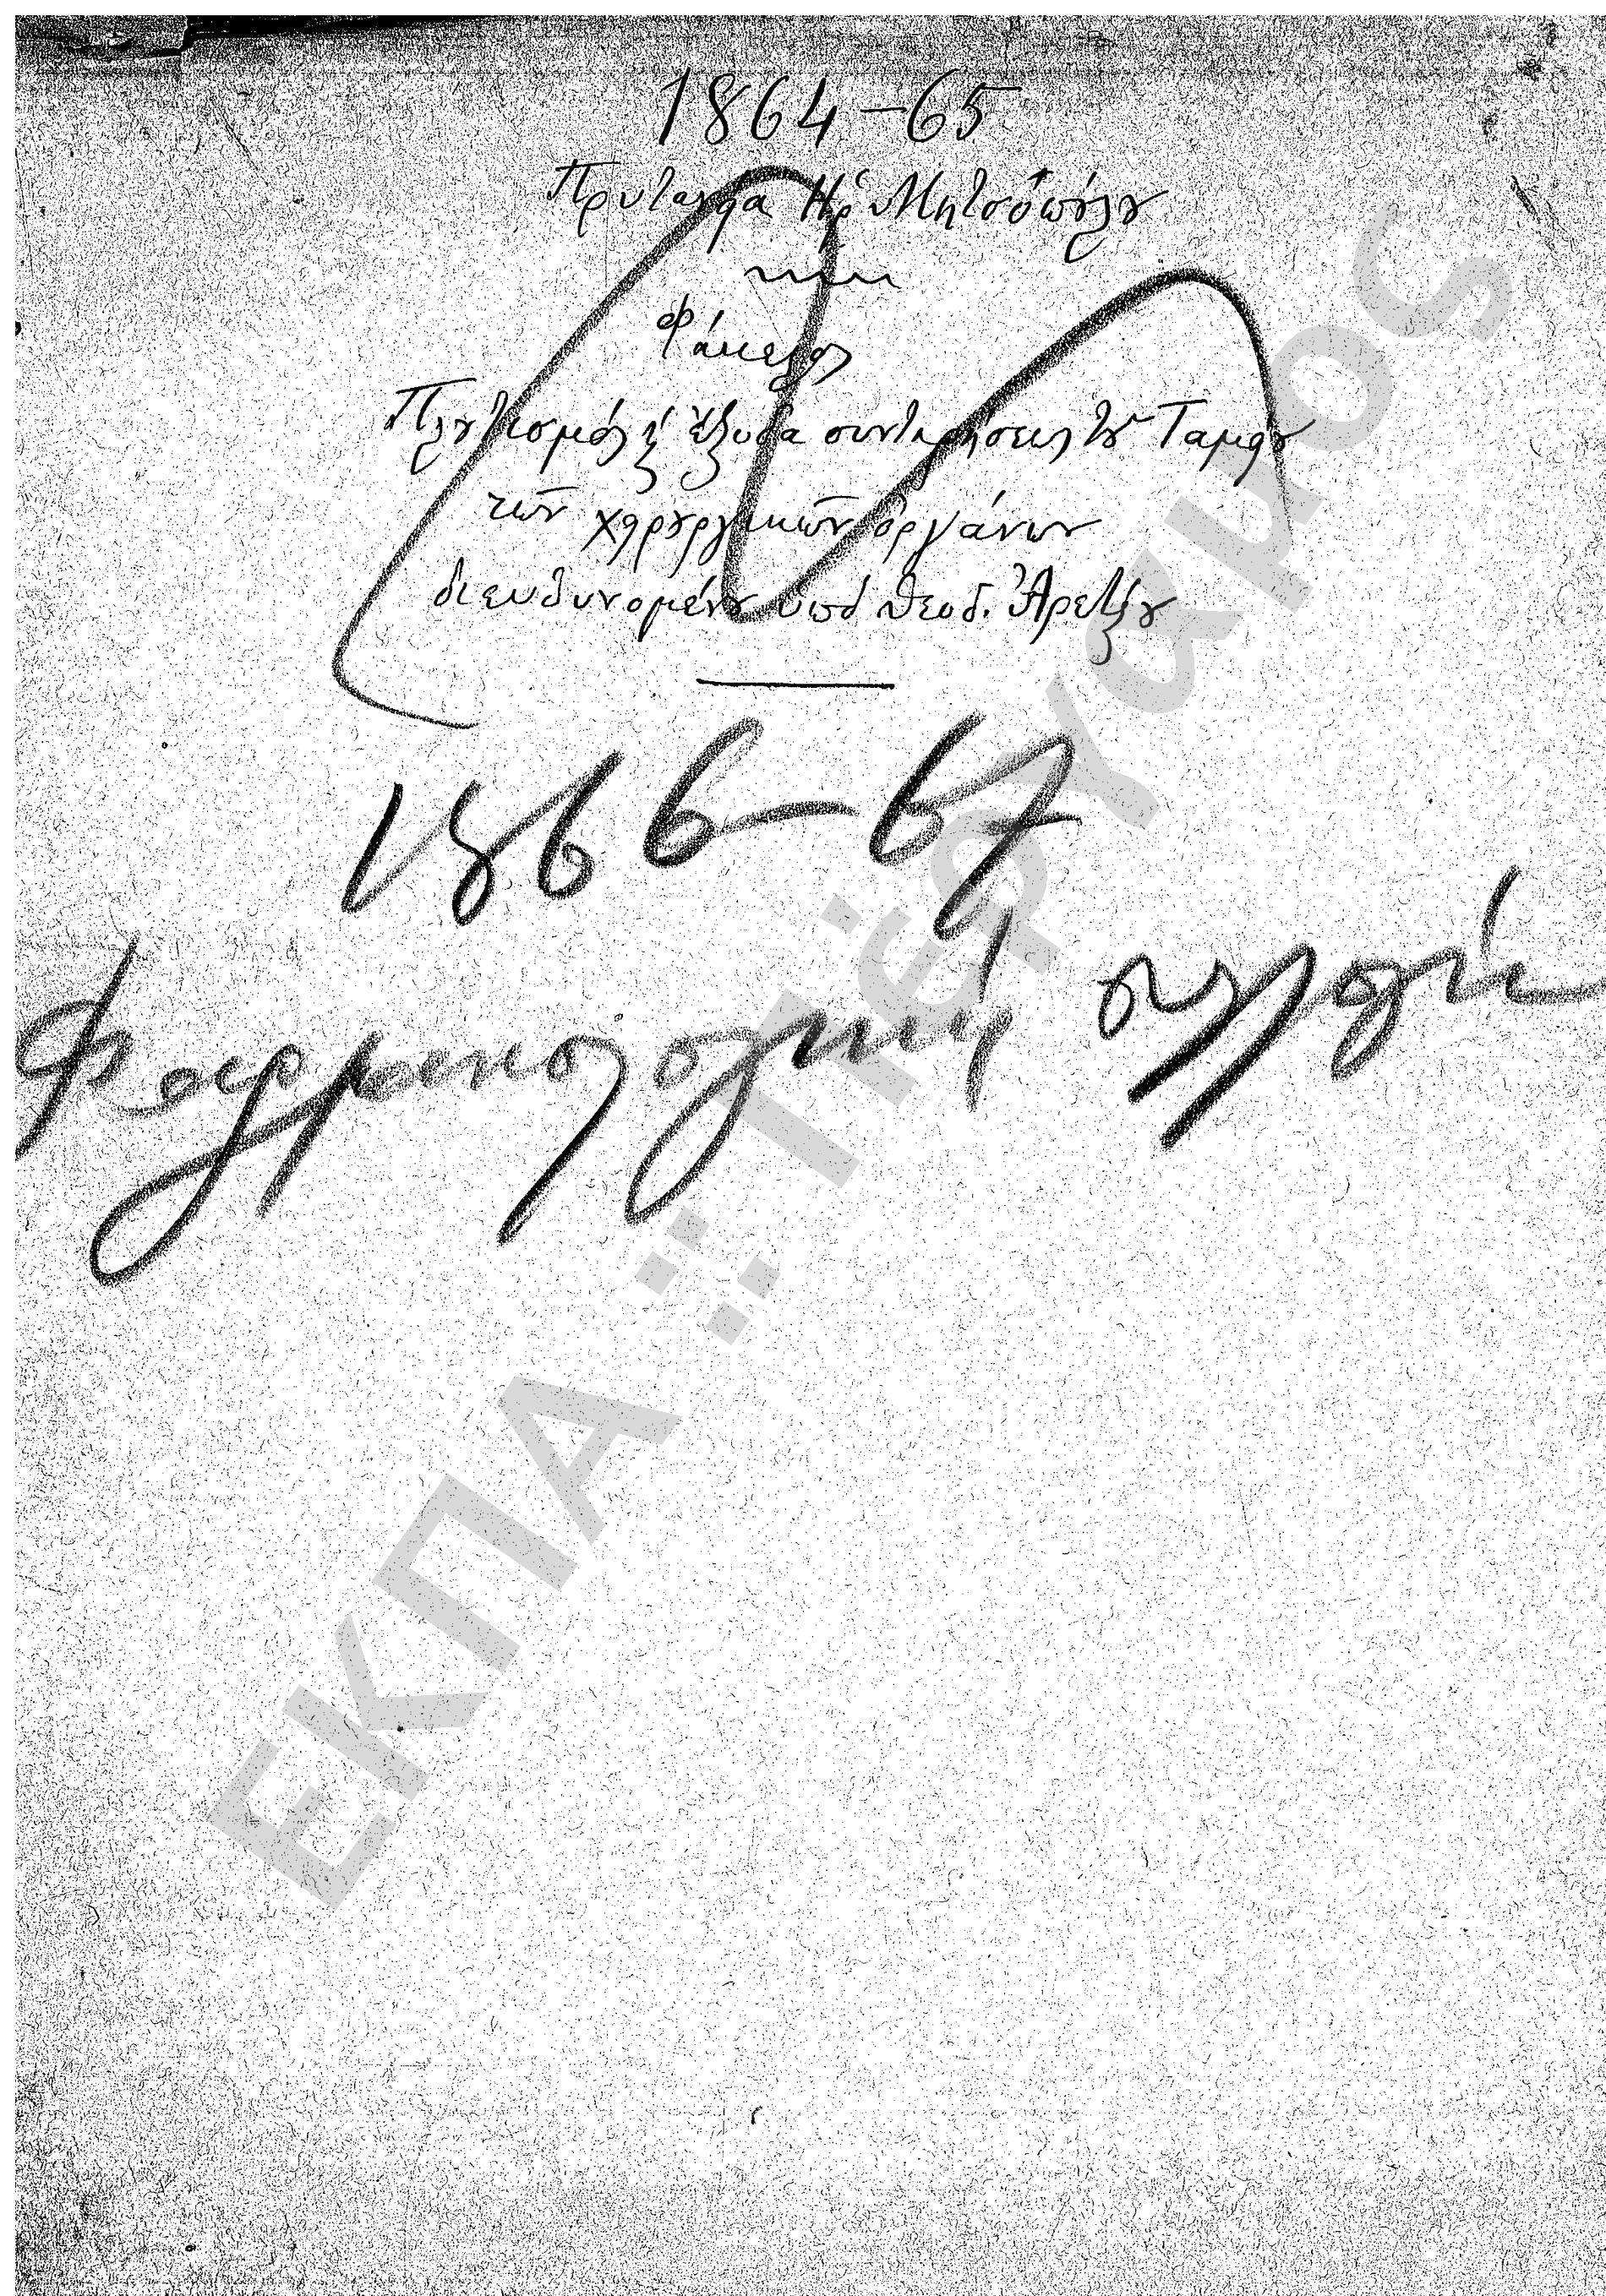 1864-65
Πρυτανεία Ηρ. Μητσοπούλου
Φάκελος
Πλουτισμός ἔξοδα συντηρήσεως τοῦ Ταμείου
τῶν χειρουργικῶν ὀργάνων
διευθυνομένου ὑπὸ Θεοδ. Ἀρεταίου
1866-67
Φαρμακολογική συλλογή
ΕΚΠΑ :: Πέργαμος